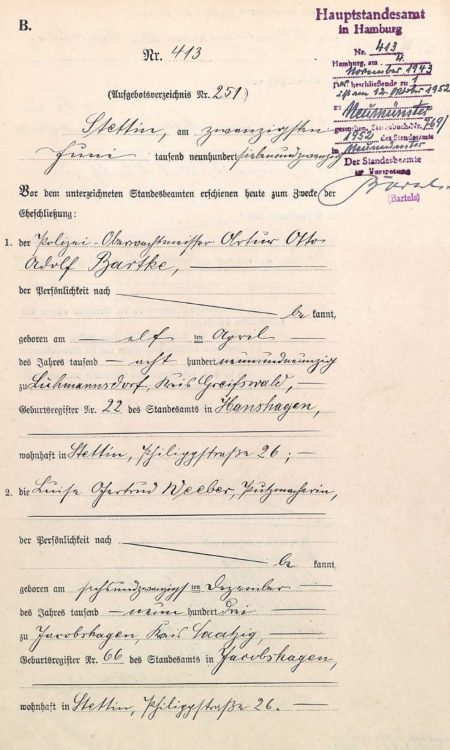 B.
Nr. 413
(Aufgebotsverzeichnis Nr. 251)
Stettin, am zwanzigsten
Juni tausend neunhundert siebenundzwanzig
Vor dem unterzeichneten Standesbeamten erschienen heute zum Zwecke der
Eheschließung:
1. der Polizei-Oberwachtmeister Artur Otto
Adolf Bartke,
der Persönlichkeit nach
be kannt,
geboren am elf ten April
des Jahres tausend acht hundert neunundneunzig
zu Lühmannsdorf, Kreis Greifswald,
Geburtsregister Nr. 22 des Standesamts in Hanshagen,
wohnhaft in Stettin, Philippstraße 26;
2. die Luise Gertrud Weeber, Putzmacherin,
der Persönlichkeit nach
be kannt,
geboren am sechsundzwanzigsten Dezember
des Jahres tausend neun hundert drei
zu Jacobshagen, Kreis Saatzig,
Geburtsregister Nr. 66 des Standesamts in Jacobshagen,
wohnhaft in Stettin, Philippstraße 26.
Hauptstandesamt
in Hamburg
Nr. 413
Hamburg, am
November 1943
beschließende zu 1
ist am 12. Oktober 1952
Neumünster
1952 des Standesamts
in Neumünster
Der Standesbeamte
in Vertretung
Bartels
(Bartels)